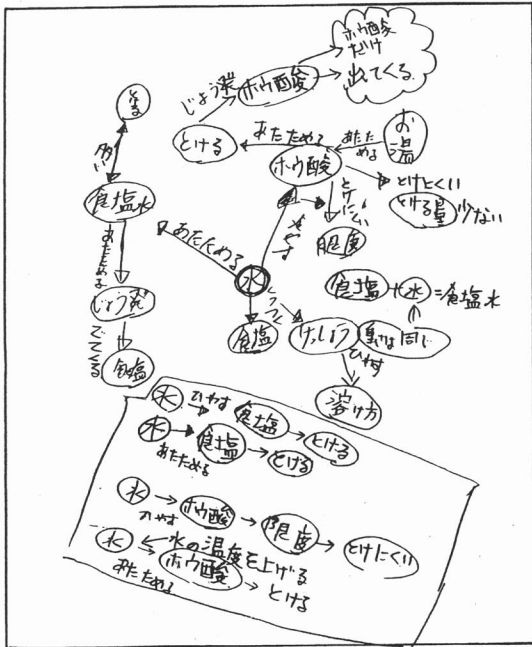 ホウ酸
だけ
出てくる
じょう発
ホウ酸
とける
あたためる
あたた
める
お
湯
ホウ酸
とけにくい
とける量 少ない
とけにくい
限度
食塩水
あたためる
じょう発
でてくる
食塩
あたためる
水
ひやす
食塩
食塩 + 水 = 食塩水
けっしょう
量は同じ
ひやす
溶け方
水 ひやす 食塩 とける
水 食塩 とける
あたためる
水 ホウ酸 限度 とけにくい
ひやす
水の温度を上げる
水 ホウ酸 とける
あたためる